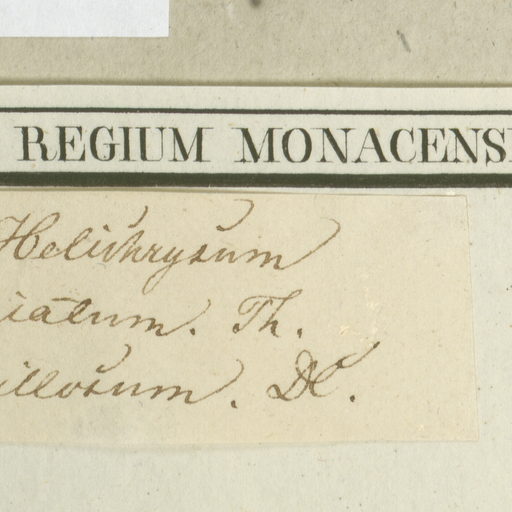 REGIUM MONACENS
Helichrysum
iatum. Th.
illosum. DC.